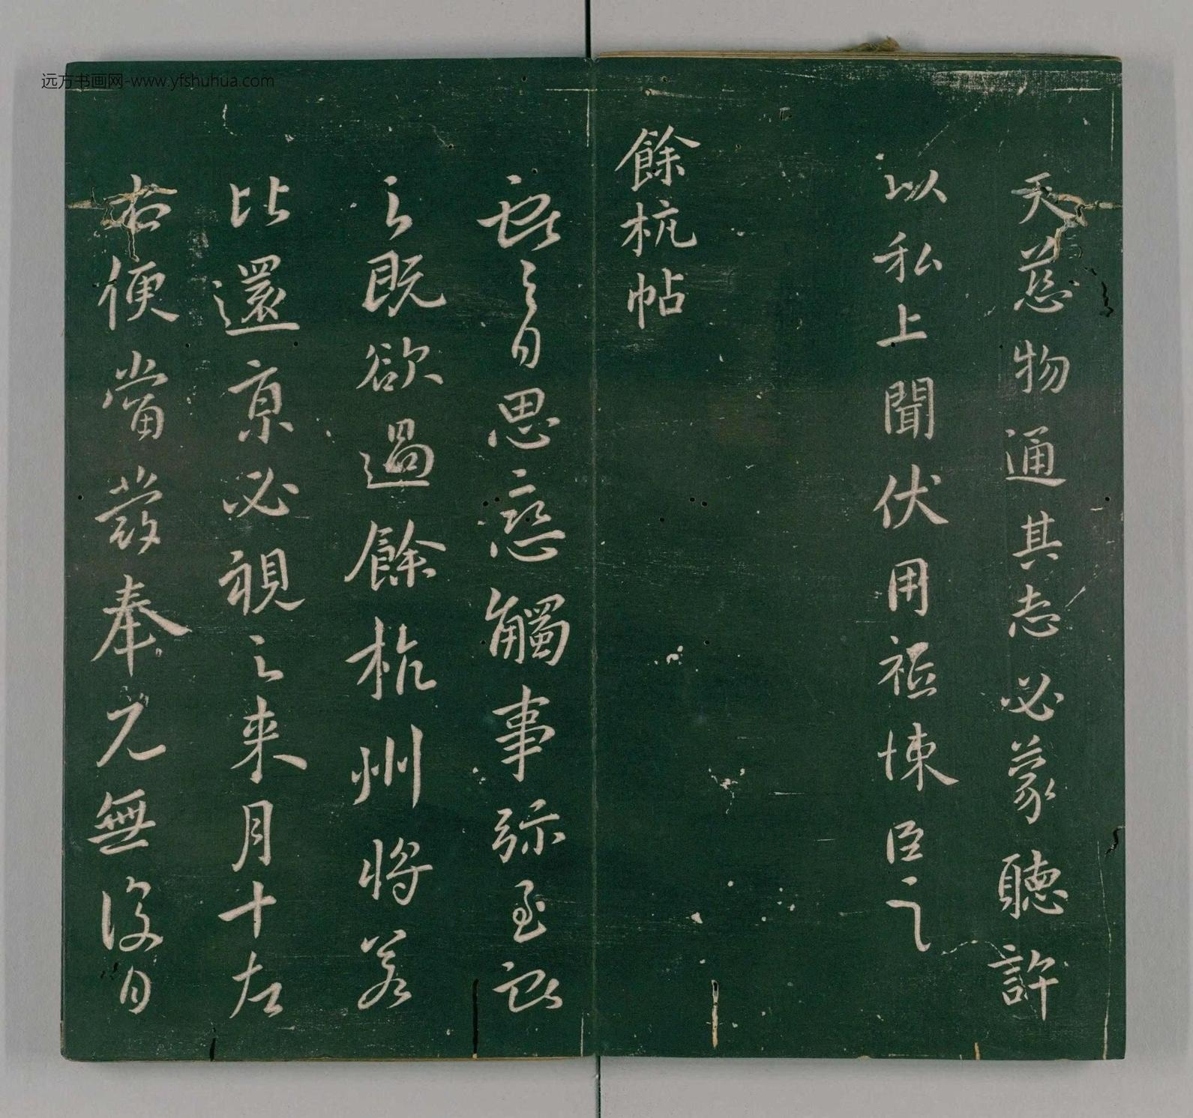 远方书画网-www.yfshuhua.com
天慈物通其志必蒙聽許
以私上聞伏用祗悚臣之
餘杭帖
獻之白思戀觸事彌至獻
之既欲過餘杭州將若
比還京必視之来月十左
右便當發奉見無復日